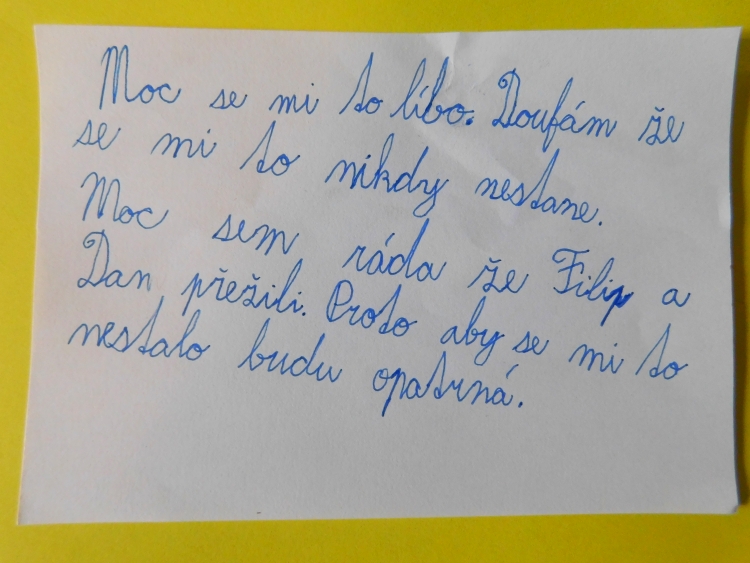 Moc se mi to líbo. Doufám že
se mi to nikdy nestane.
Moc sem ráda že Filip a
Dan přežili. Proto aby se mi to
nestalo budu opatrná.